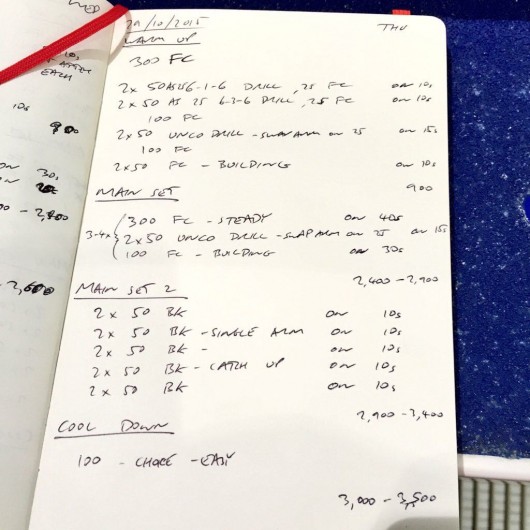 WED
10s
EACH
10s
900
ON 30s
ON
00 - 2,800
- 2,600
29/10/2015 THU
WARM UP
300 FC
2x 50 AS 25 6-1-6 DRILL, 25 FC ON 10s
2x 50 AS 25 6-3-6 DRILL, 25 FC ON 10s
100 FC
2x50 UNCO DRILL - SWAP ARM ON 25 ON 15s
100 FC
2x50 FC - BUILDING ON 10s
900
MAIN SET
300 FC - STEADY ON 40s
3-4x 2x50 UNCO DRILL - SWAP ARM ON 25 ON 15s
100 FC - BUILDING ON 30s
2,400 - 2,900
MAIN SET 2
2 x 50 BK ON 10s
2 x 50 BK - SINGLE ARM ON 10s
2 x 50 BK - ON 10s
2 x 50 BK - CATCH UP ON 10s
2 x 50 BK ON 10s
2,900 - 3,400
COOL DOWN
100 - CHOICE - EASY
3,000 - 3,500